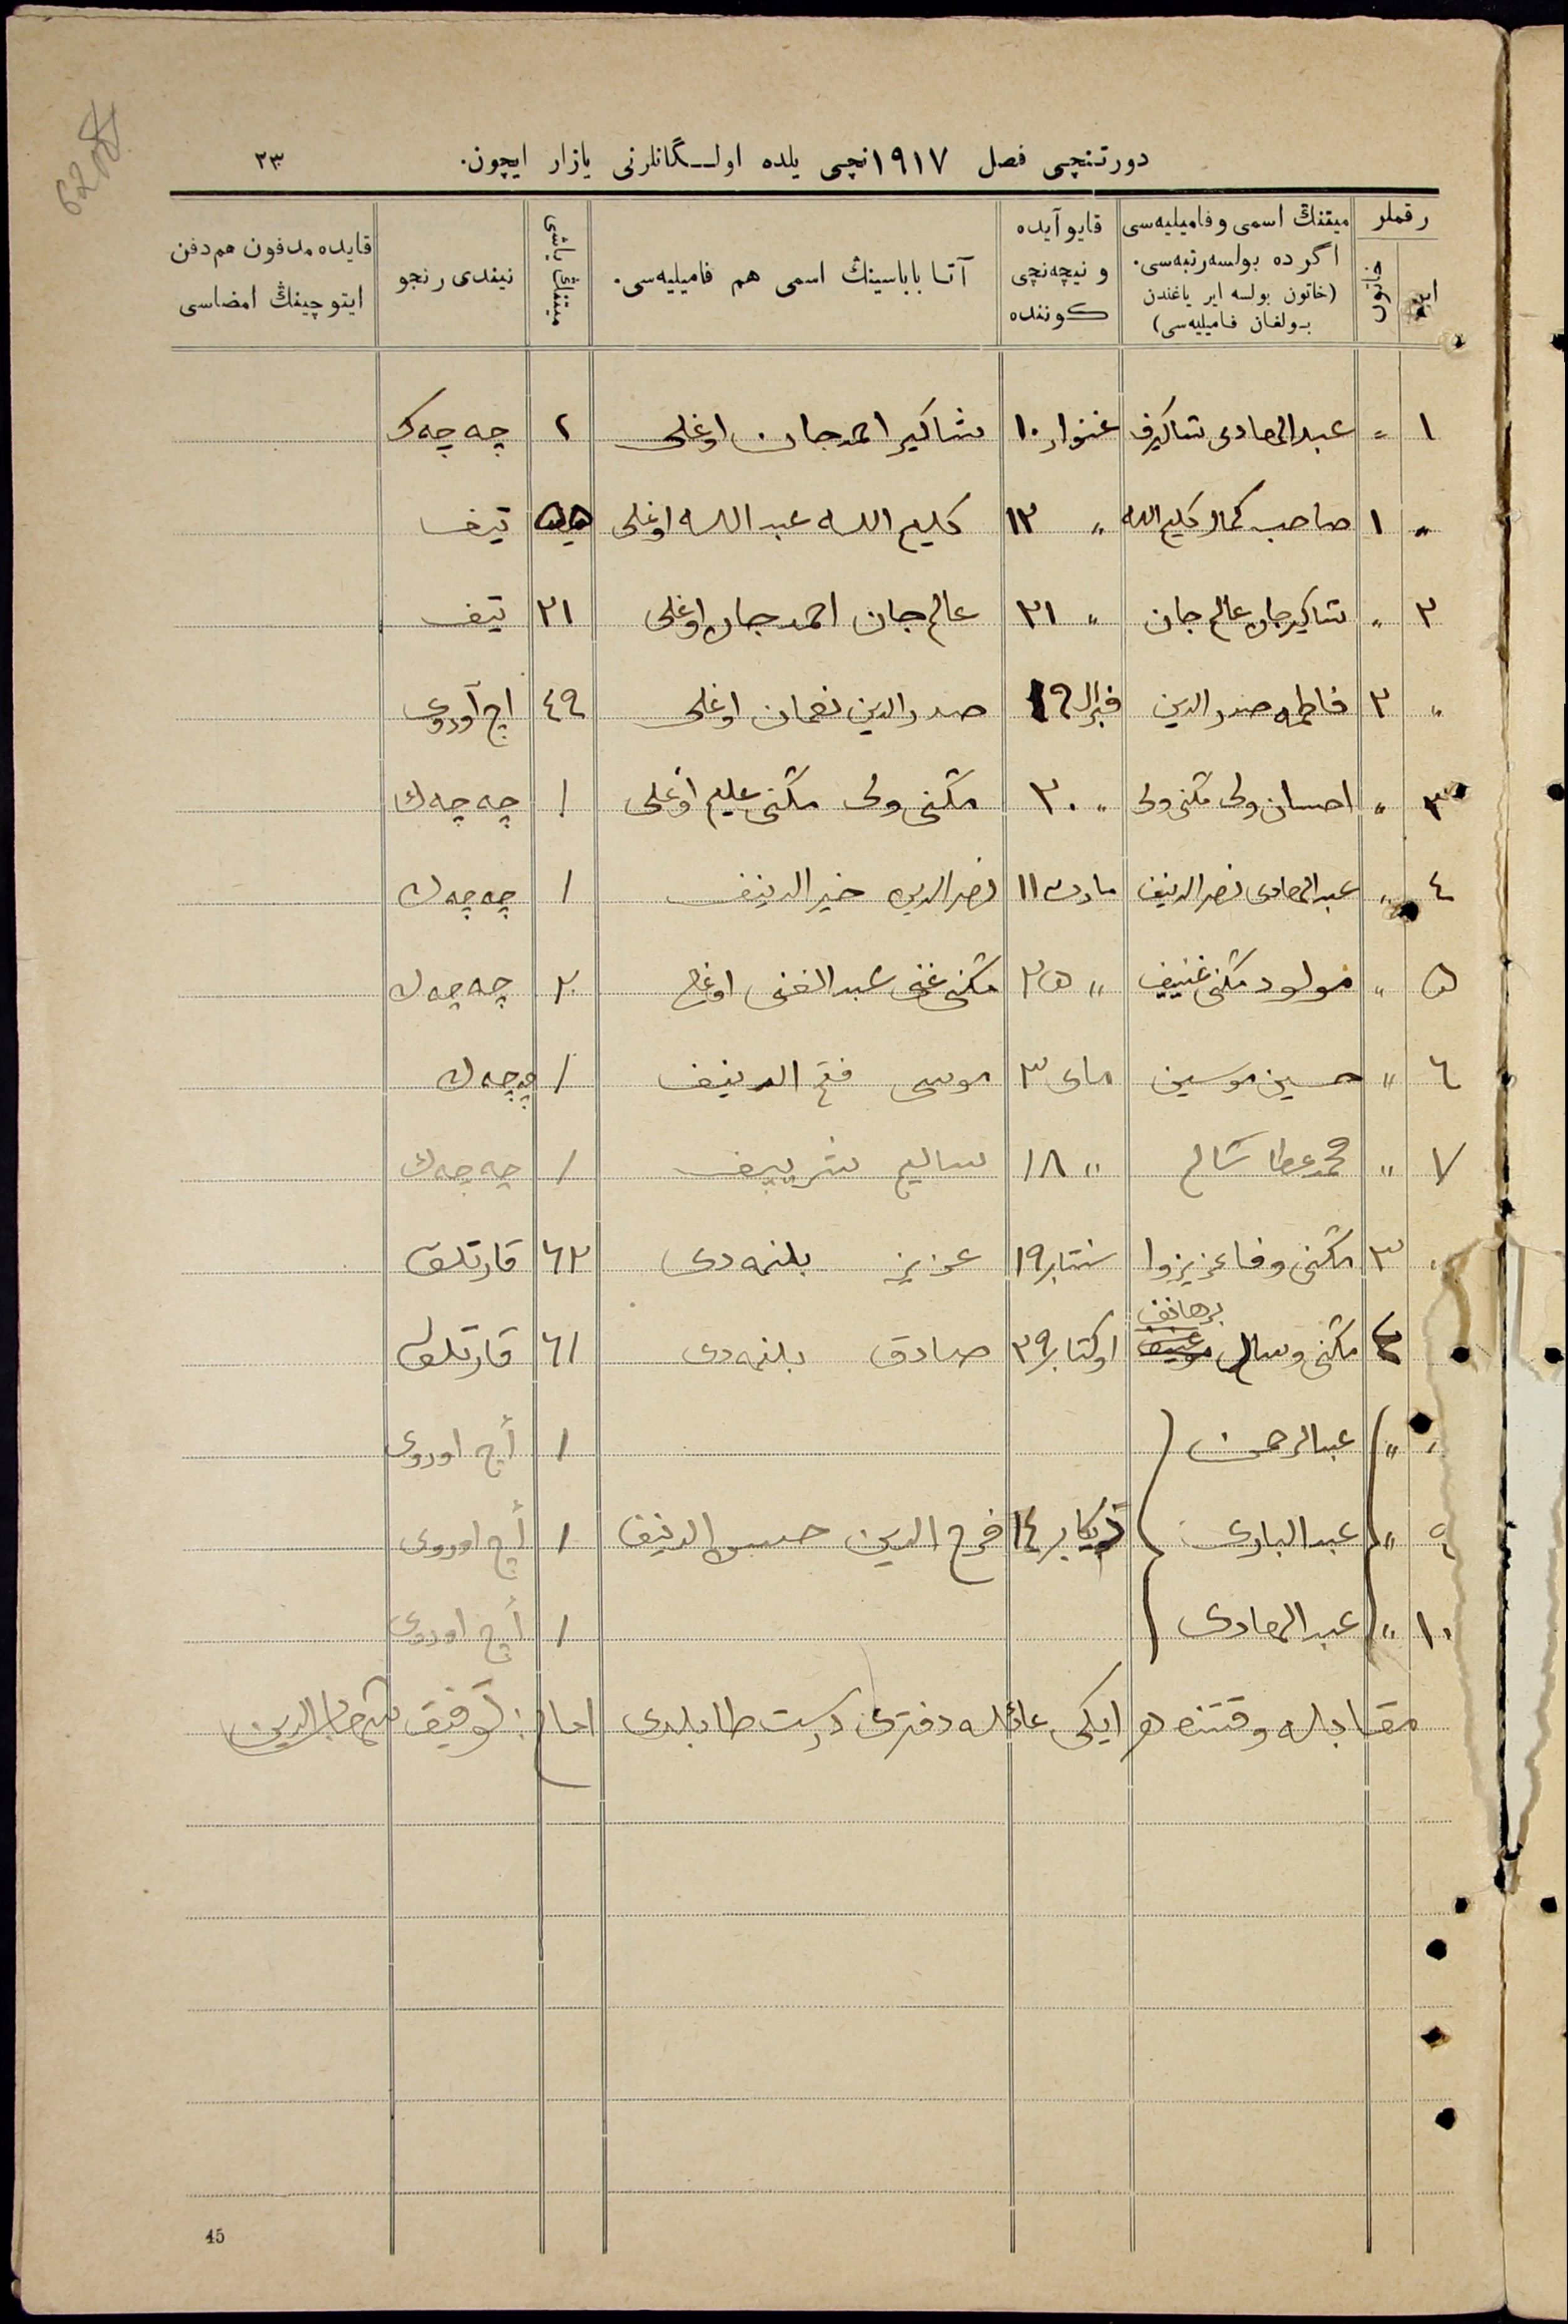 دورتنچی فصل ١٩١٧نچی یلده اولـگانلرنی یازار ایچون. ٢٣
رقملر میتنڭ اسمی و فامیلیه‌سی اگر ده بولسه رتبه‌سی. (خاتون بولسه ایر یاغندن بولغان فامیلیه‌سی) قایو آیده و نیچه‌نچی کوننده آتا باباسینڭ اسمی هم فامیلیه‌سی. میتنڭ یاشی نیندی رنجو قایده مدفون هم دفن ایتوچینڭ امضاسی
ایر خاتون
١ " عبدالهادی شاکیرف غنوار ١٠ شاکیر احمدجان اوغلی ٢ چه چه ک
" ١ صاحب کمال کلیم الله " ١٣ کلیم الله عبد الله اوغلی تیف
٢ " شاکیرجان عالم جان " ٢١ عالم جان احمد جان اوغلی ٢١ تیف
" ٢ فاطمه صدر الدین فبرال ١٩ صدر الدین نعمان اوغلی ٤٩ اچ آوروی
٣ " احسان ولی مثنی ولی " ٢٠ مثنی ولی مثنی علیم اوغلی ١ چه چه ك
٤ " عبدالهادی نصر الدینف مارت ١١ نصرالدین خیر الدینف ١ چه چه ك
۵ " مولود مثنی غنییف " ٢۵ مثنی غنی عبد الغنی اوغلی ٢ چه چه ك
٦ " حسین موسین مای ٣ موسی فتح الدینف ١ چه چه ك
٧ " محمد عطا سالم " ١٨ سالیم شریپف ١ چه چه ك
" ٣ مثنی وفا عزیزوا سنتابر ١٩ عزیز بلنمه دی ٦٢ قارتلق
برهانف
٤ مثنی وسالی اوکتابر ٢٩ صادق بلنمه دی ٦١ قارتلق
" عبدالرحمن ١ أچ اوروی
٩ " عبد الباری دیکابر ١٤ فرح الدین الدینف ١ أچ اوروی
١٠ " عبد الهادی ١ أچ اوروی
مقابله وقتنده هر ایکی عائله دفتری درست طابلدی امام: توفیق
45